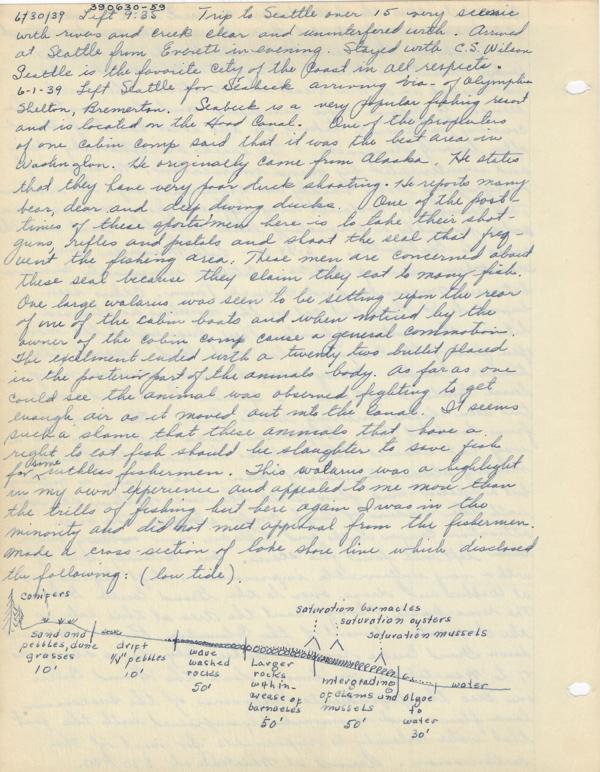 390630-59
6/30/39 Left 9:35 Trip to Seattle over 15 very scenic
with rivers and creek clear and uninterfered with. Arrived
at Seattle from Everett in evening. Stayed with C.S. Wilson
Seattle is the favorite city of the Coast in all respects.
6-1-39 Left Seattle for Seabeck arriving via- of Olympha
Shelton, Bremerton. Seabeck is a very popular fishing resort
and is located on the Hood Canal. One of the propieters
of one cabin comp said that it was the best area in
Washington. He originally came from Alaska. He states
that they have very poor duck shooting. He reports many
bear, dear and deep diving ducks. One of the past-
times of these sports'men here is to take their shot-
guns, rifles and pistals and shoot the seal that freq-
uent the fishing area. These men are concerned about
these seal because they claim they eat to many fish.
One large walarus was seen to be setting upon the rear
of one of the cabin boats and when noticed by the
owner of the cabin comp cause a general commotion.
The excitment ended with a twenty two bullet placed
in the posterior part of the animals body. As far as one
could see the animal was observed fighting to get
enough air as it moved out into the Canal. It seems
such a shame that these animials that have a
right to eat fish should be slaughter to save fish
for some ruthless fishermen. This walarus was a highlight
in my own experience and appealed to me more than
the trills of fishing but here again I was in the
minority and did not meet approval from the fishermen.
Made a cross-section of lake shore line which disclosed
the following: (low tide).
conifers
sand and
pebbles, dune
grasses
10'
drift
1/4" pebbles
10'
wave
washed
rocks
50'
Larger
rocks
with in-
crease of
barnacles
50'
saturation barnacles
saturation oysters
saturation mussels
intergrading
of clams and
mussels
50'
algae
to
water
30'
water